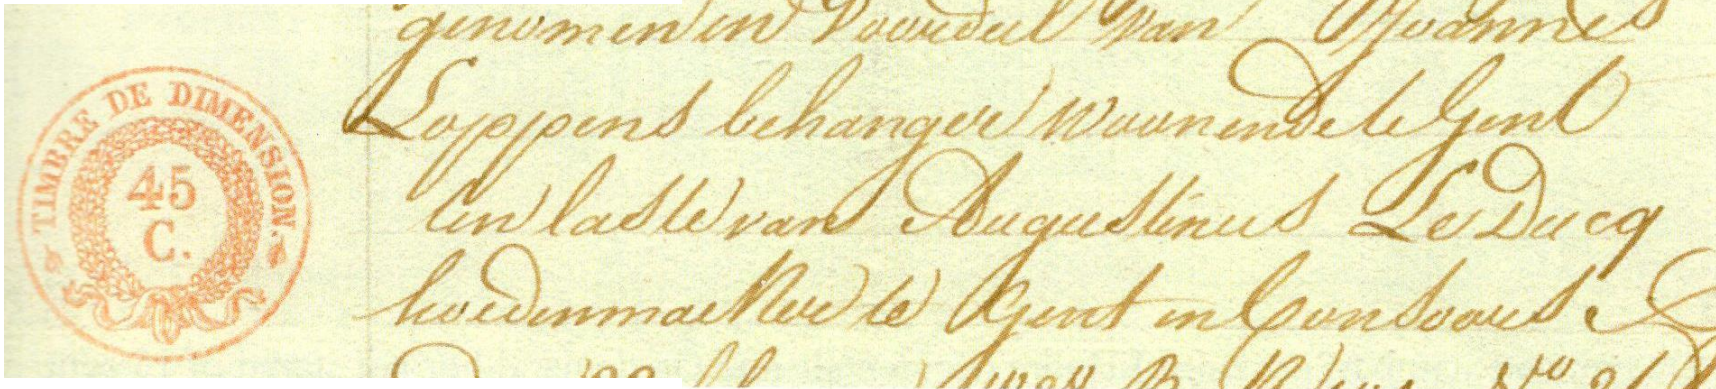 TIMBRE DE DIMENSION.
45
C.
genomen in voordeel van Joannes
Loppens behanger woonende te Gent
ten laste van Augustinus Le Ducq
hoedenmaker te Gent en Consoors